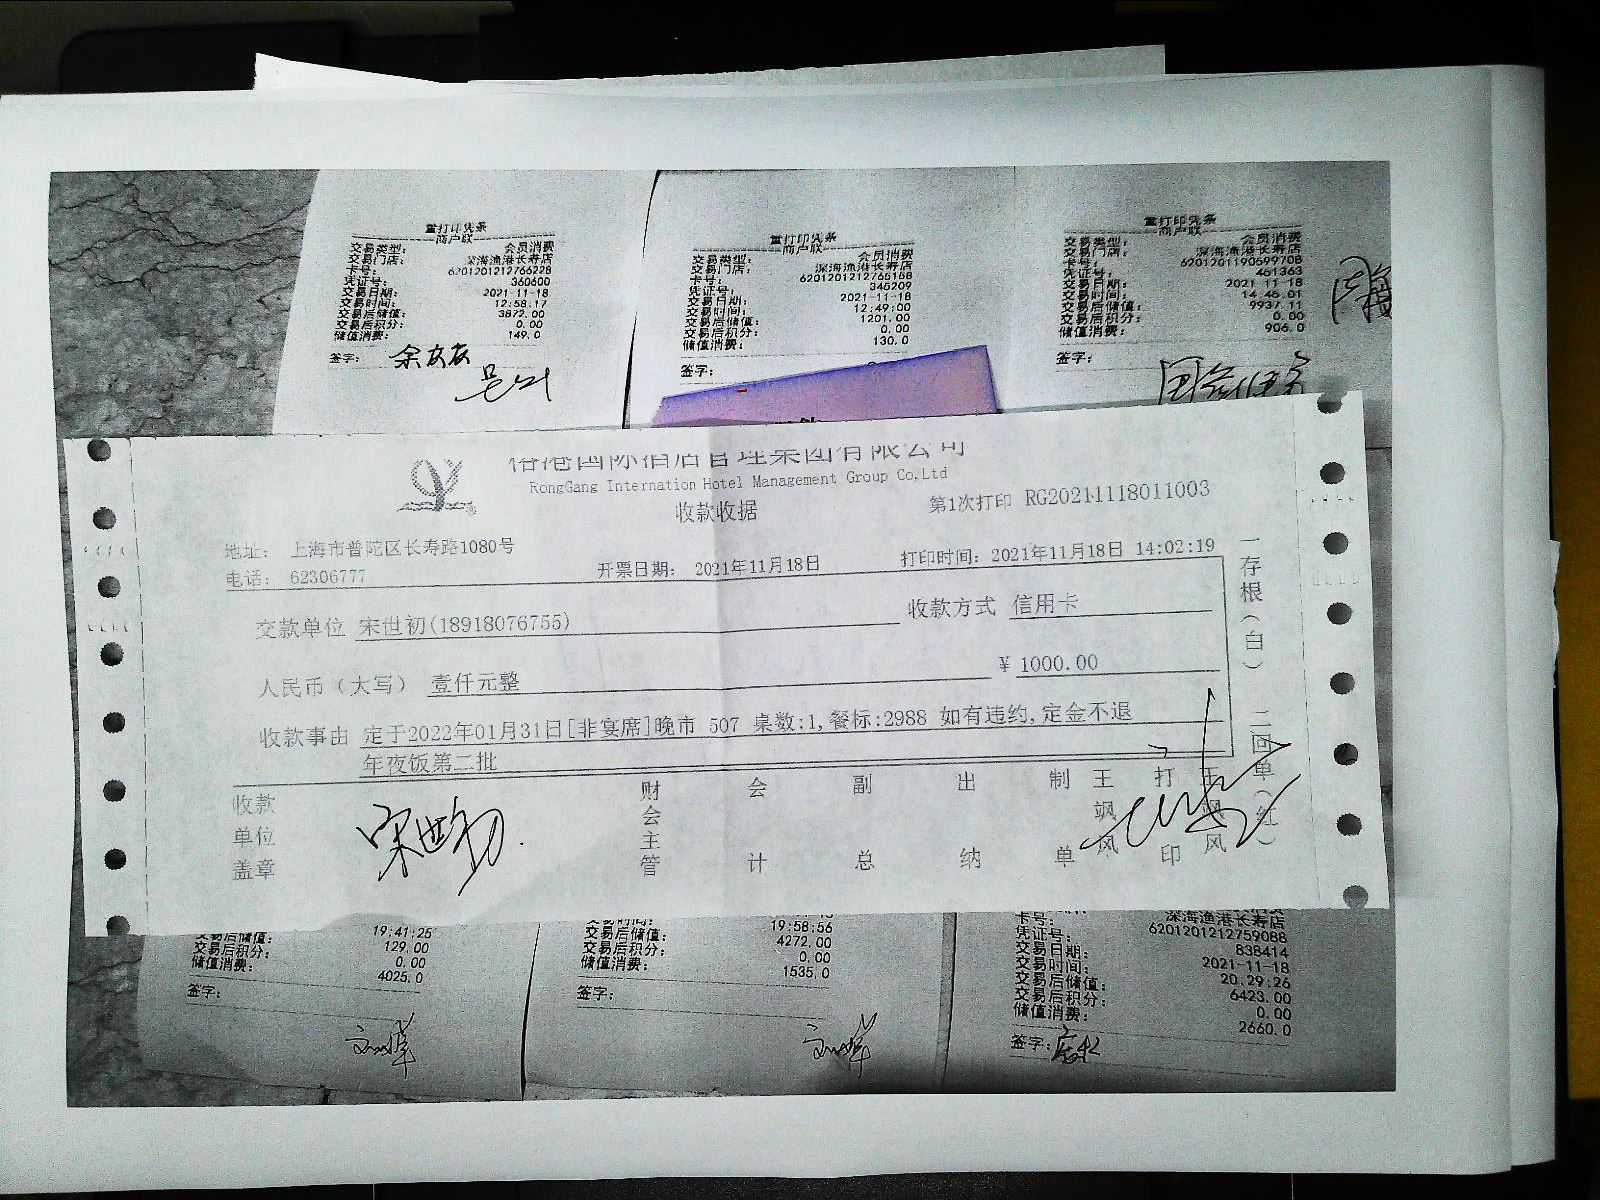 重打印凭条
商户联
交易类型: 会员消费
交易门店: 深海渔港长寿店
卡号: 6201201212766228
凭证号: 360600
交易日期: 2021-11-18
交易时间: 12:58:17
交易后储值: 3872.00
交易后积分: 0.00
储值消费: 149.0
签字:
重打印凭条
商户联
交易类型: 会员消费
交易门店: 深海渔港长寿店
卡号: 6201201212765168
凭证号: 346209
交易日期: 2021-11-18
交易时间: 12:49:00
交易后储值: 1201.00
交易后积分: 0.00
储值消费: 130.0
签字:
重打印凭条
商户联
交易类型: 会员消费
交易门店: 深海渔港长寿店
卡号: 6201201190699708
凭证号: 461363
交易日期: 2021-11-18
交易时间: 14:46:01
交易后储值: 9937.11
交易后积分: 0.00
储值消费: 906.0
签字:
港国际酒店管理集团有限公司
RongGang Internation Hotel Management Group Co,Ltd
收款收据
第1次打印 RG20211118011003
地址: 上海市普陀区长寿路1080号
电话: 62306777
开票日期: 2021年11月18日
打印时间: 2021年11月18日 14:02:19
交款单位 宋世初(18918076755)
收款方式 信用卡
人民币(大写) 壹仟元整
¥ 1000.00
收款事由 定于2022年01月31日[非宴席]晚市 507 桌数:1,餐标:2988 如有违约,定金不退
年夜饭第二批
收款单位盖章
宋世初
财会主管
会计
副总
出纳
制单
王飒风
打印
王飒风
一存根(白) 二回单(红)
19:41:25
交易后储值: 129.00
交易后积分: 0.00
储值消费: 4025.0
签字:
交易时间: 19:58:56
交易后储值: 4272.00
交易后积分: 0.00
储值消费: 1535.0
签字:
深海渔港长寿店
卡号: 6201201212759088
凭证号: 838414
交易日期: 2021-11-18
交易时间: 20:29:26
交易后储值: 6423.00
交易后积分: 0.00
储值消费: 2660.0
签字: